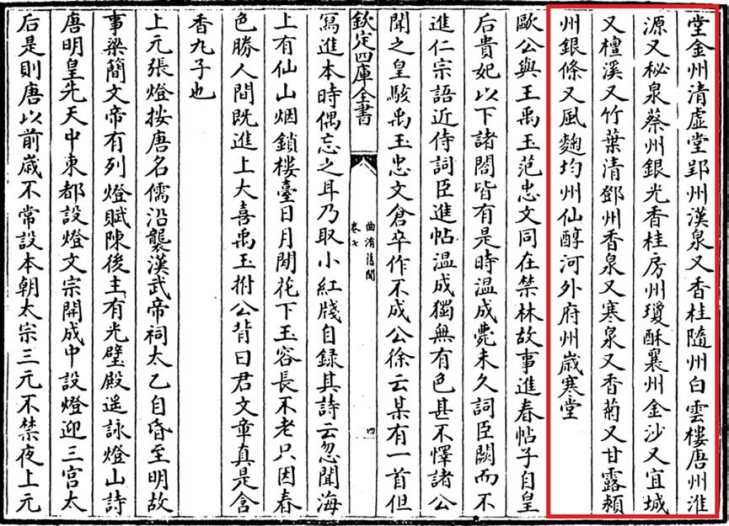 堂金州清虚堂郢州漢泉又香桂隨州白雲樓唐州淮
源又秘泉蔡州銀光香桂房州瓊酥襄州金沙又宜城
又檀溪又竹葉清鄧州香泉又寒泉又香菊又甘露潁
州銀條又風麴均州仙醇河外府州歲寒堂
歐公與王禹玉范忠文同在禁林故事進春帖子自皇
后貴妃以下諸閤皆有是時温成薨未久詞臣闕而不
進仁宗語近侍詞臣進帖温成獨無有色甚不懌諸公
聞之皇駭禹玉忠文倉卒作不成公徐云某有一首但
欽定四庫全書
曲洧舊聞
卷七
四
寫進本時偶忘之耳乃取小紅牋自録其詩云忽聞海
上有仙山烟鎖樓臺日月閒花下玉容長不老只因春
色勝人間既進上大喜禹玉拊公背曰君文章真是含
香丸子也
上元張燈按唐名儒沿襲漢武帝祠太乙自昏至明故
事梁簡文帝有列燈賦陳後主有光璧殿遥詠燈山詩
唐明皇先天中東都設燈文宗開成中設燈迎三宫太
后是則唐以前歲不常設本朝太宗三元不禁夜上元